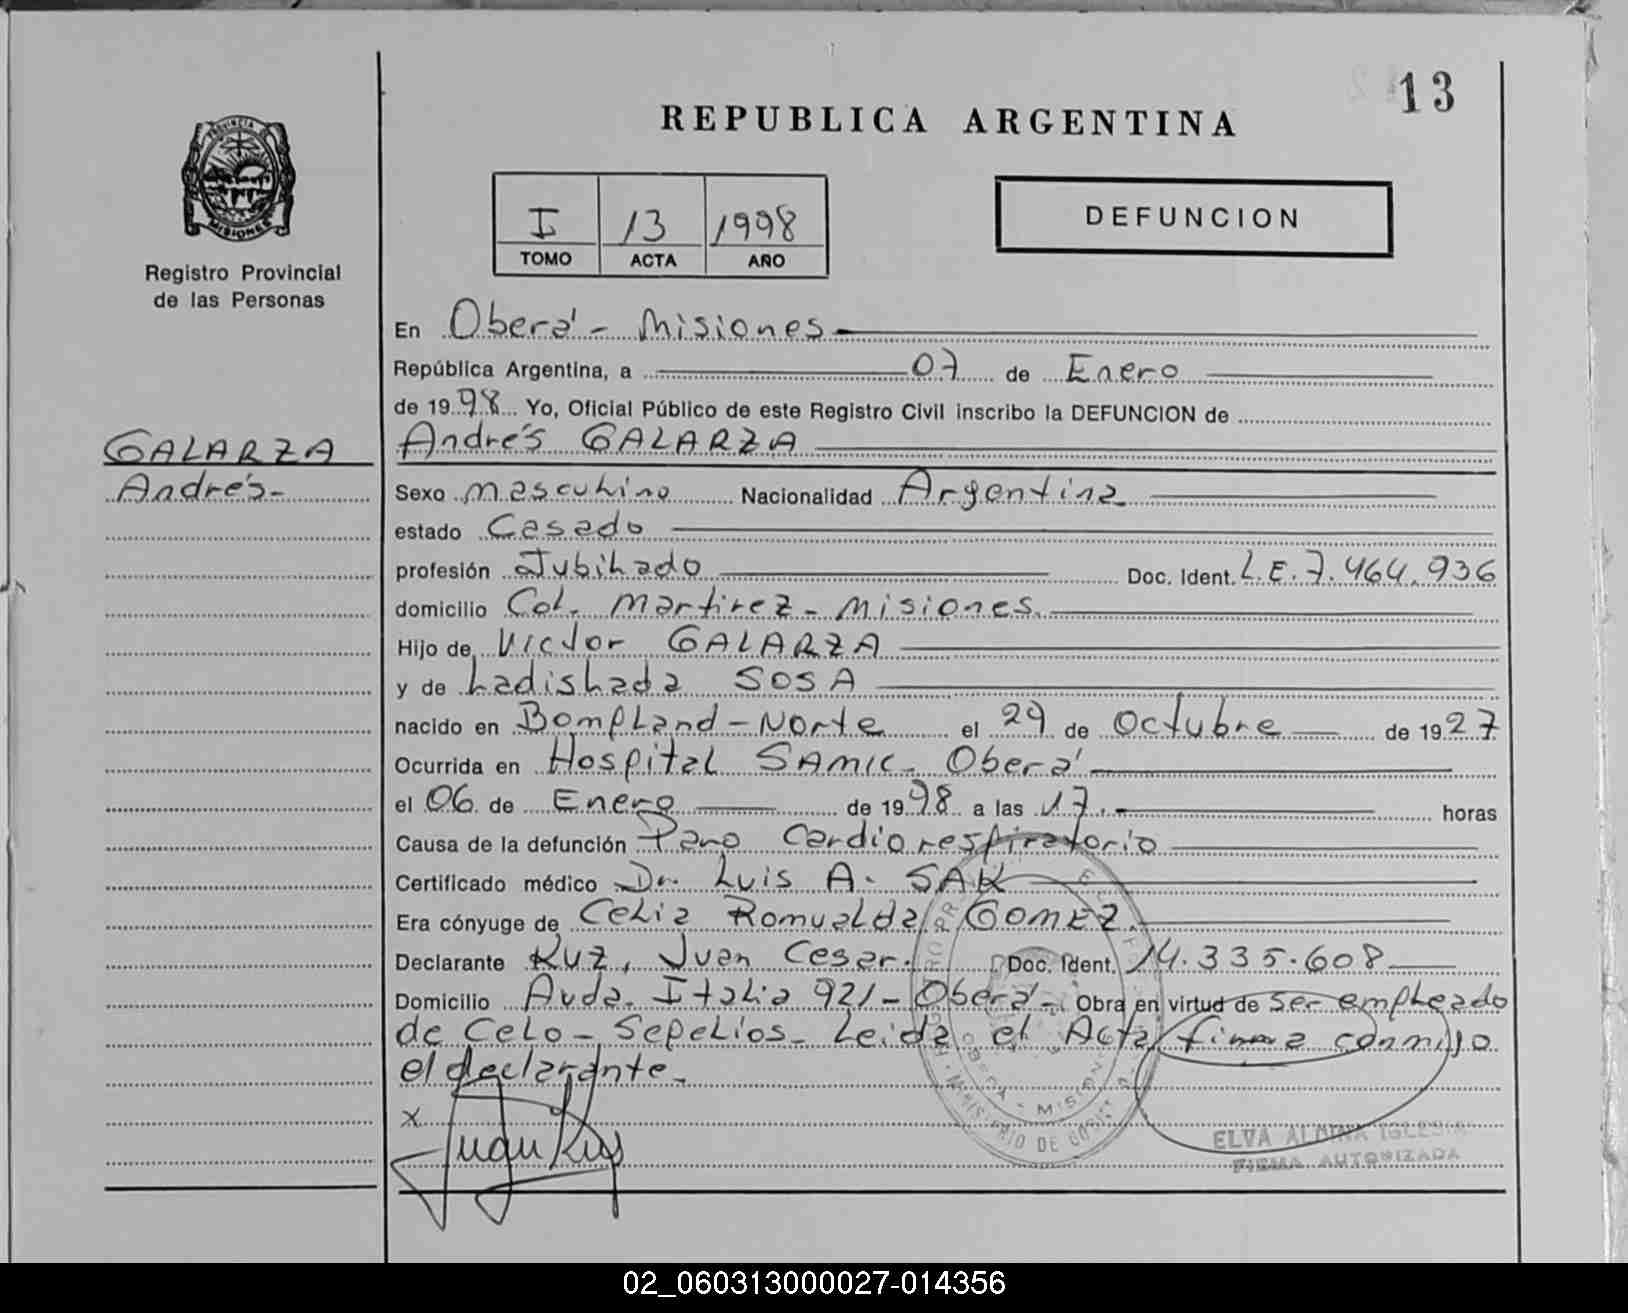 13
REPUBLICA ARGENTINA
PROVINCIA DE
MISIONES
Registro Provincial
de las Personas
I 13 1998
TOMO ACTA AÑO
DEFUNCION
GALARZA
Andrés-
En Oberá - Misiones
República Argentina, a 07 de Enero
de 1998 Yo, Oficial Público de este Registro Civil inscribo la DEFUNCION de
Andrés GALARZA
Sexo masculino Nacionalidad Argentina
estado Casado
profesión Jubilado Doc. Ident. L.E. 7.464.936
domicilio Col. Martirez - Misiones.
Hijo de Victor GALARZA
y de Ladislada SOSA
nacido en Bompland - Norte el 29 de Octubre de 1927
Ocurrida en Hospital SAMIC - Oberá
el 06 de Enero de 1998 a las 17.- horas
Causa de la defunción Paro Cardiorespiratorio
Certificado médico Dr. Luis A. SAK
Era cónyuge de Celia Romualda GOMEZ.
Declarante Ruz, Juan Cesar. Doc. Ident. 14.335.608
Domicilio Avda. Italia 921 - Oberá - Obra en virtud de ser empleado
de CELO - Sepelios - Leida el Acta firma conmigo
el declarante.-
x
Juan Ruz
OBERA - MISIONES
MINISTERIO DE
ELVA ALMINA IGLESIAS
FIRMA AUTORIZADA
02_060313000027-014356